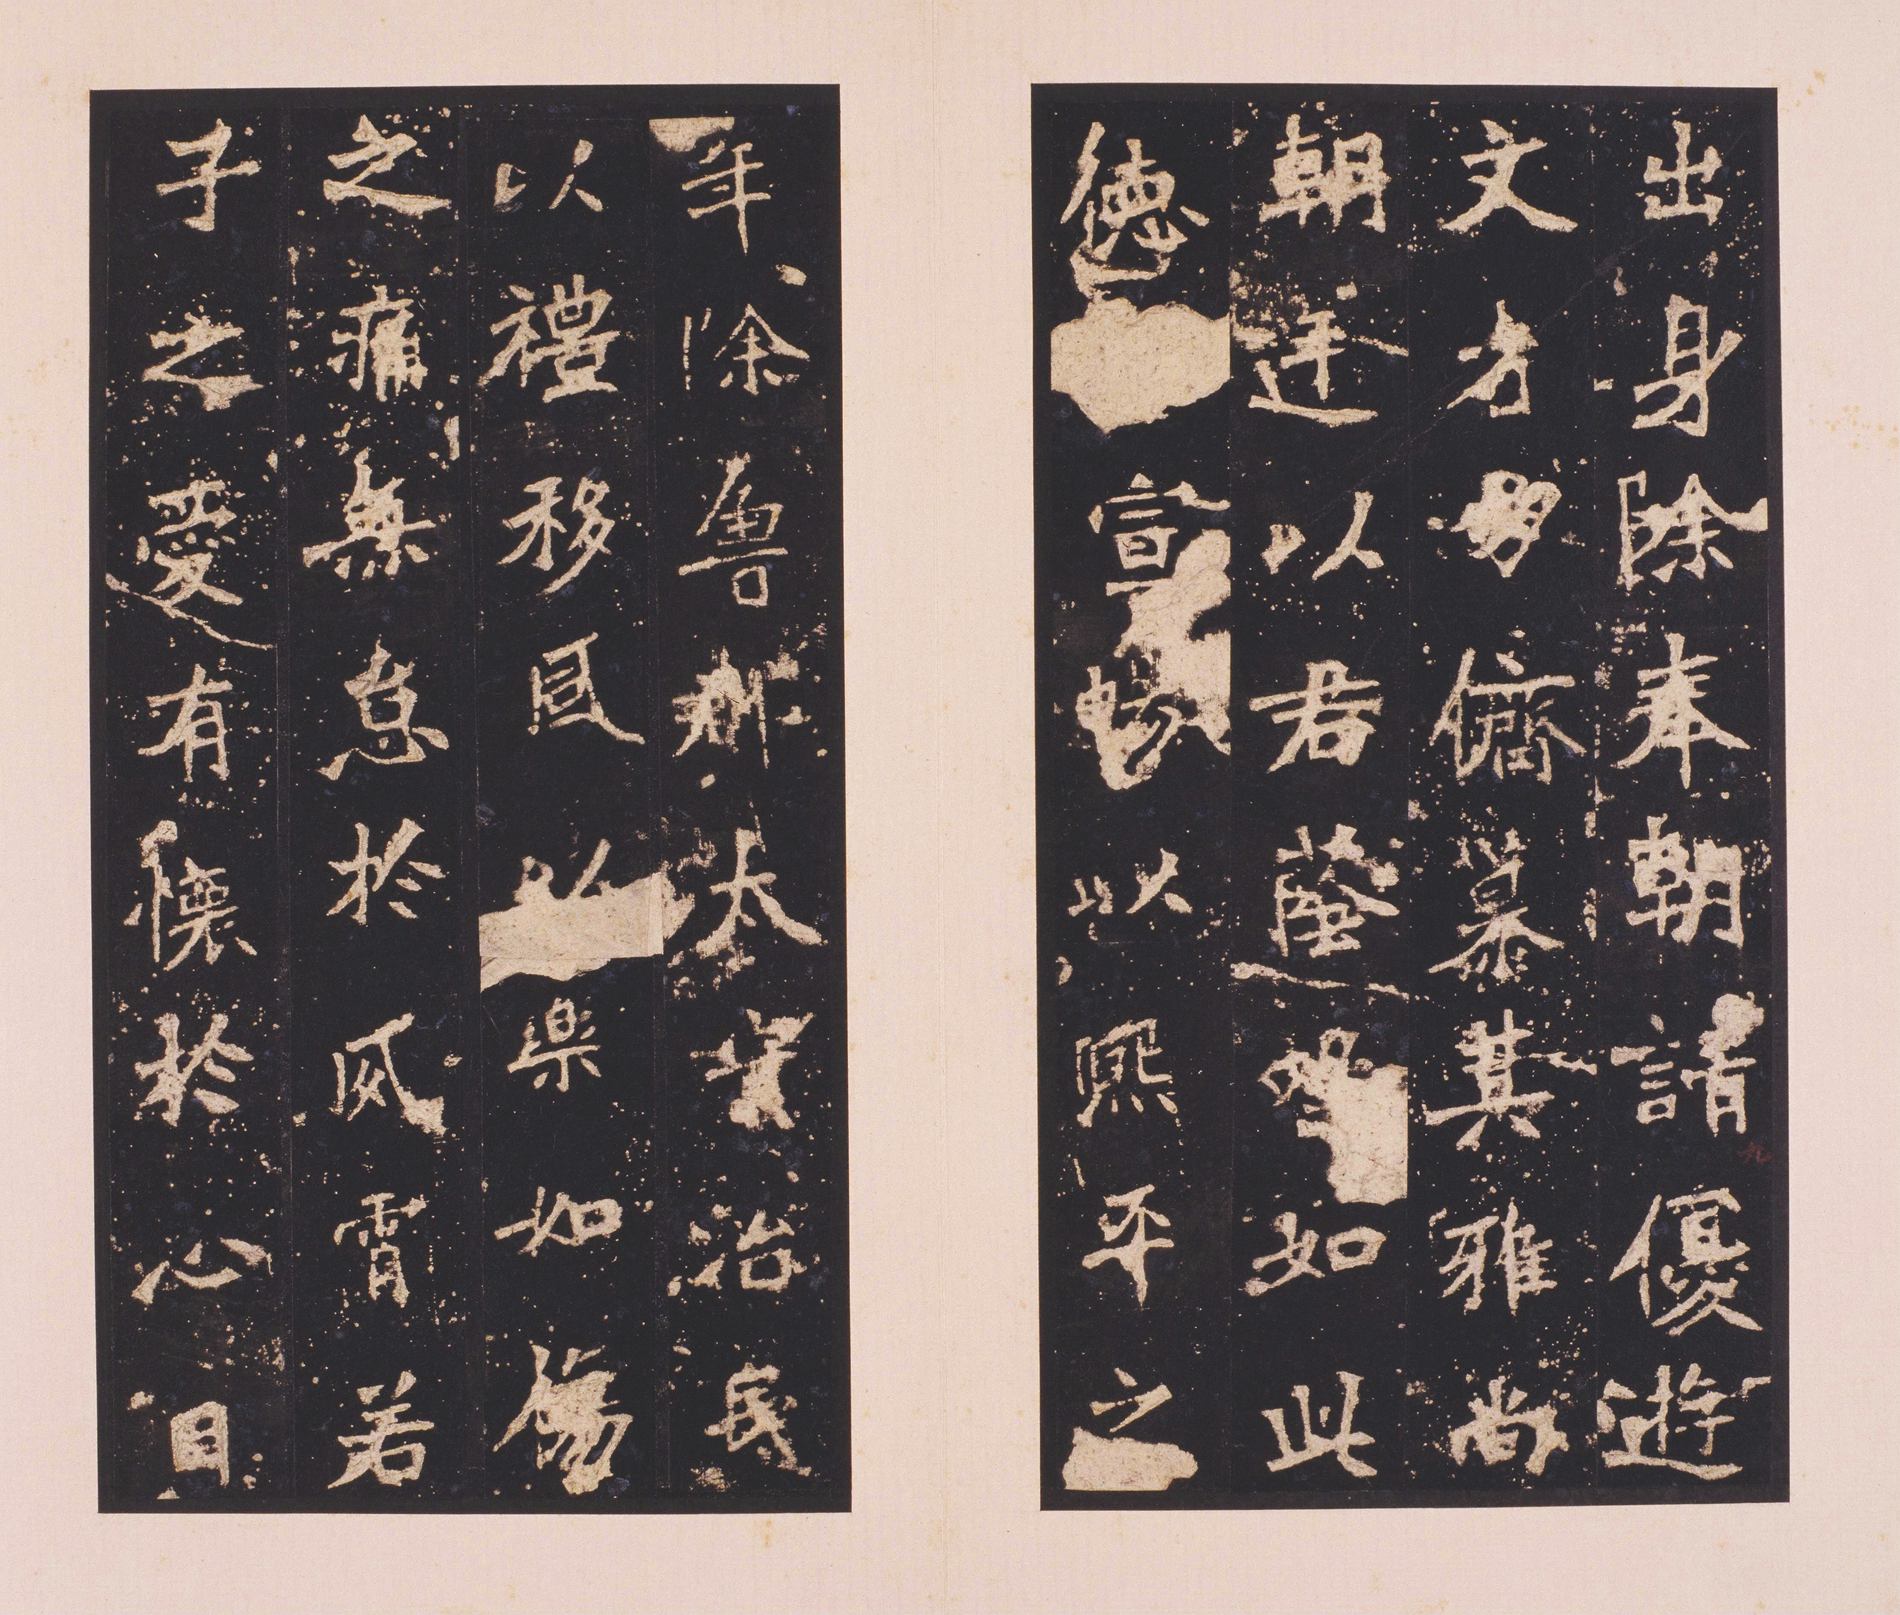 出身除奉朝請優遊
文才朋儕慕其雅尚
朝廷以君蔭望如此
德宣暢以熙平之
年除魯郡太守治民
以禮移風以樂如傷
之痛無怠於夙霄若
子之愛有懷於心目